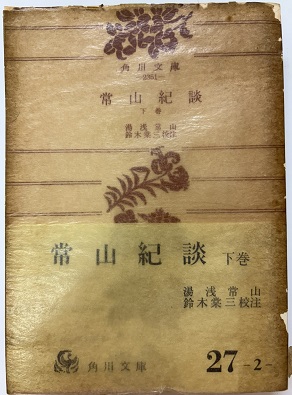 角川文庫
—2351—
常山紀談
下巻
湯浅常山
鈴木棠三校注
常山紀談 下巻
湯浅常山
鈴木棠三校注
角川文庫
27-2-